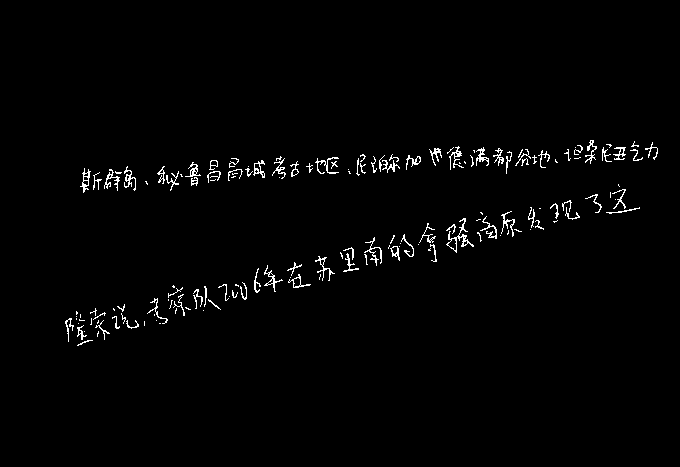 斯群岛、秘鲁昌昌城考古地区、尼泊尔加世德满都谷地、坦桑尼亚乞力
隆索说,考察队2006年在苏里南的拿骚高原发现了这